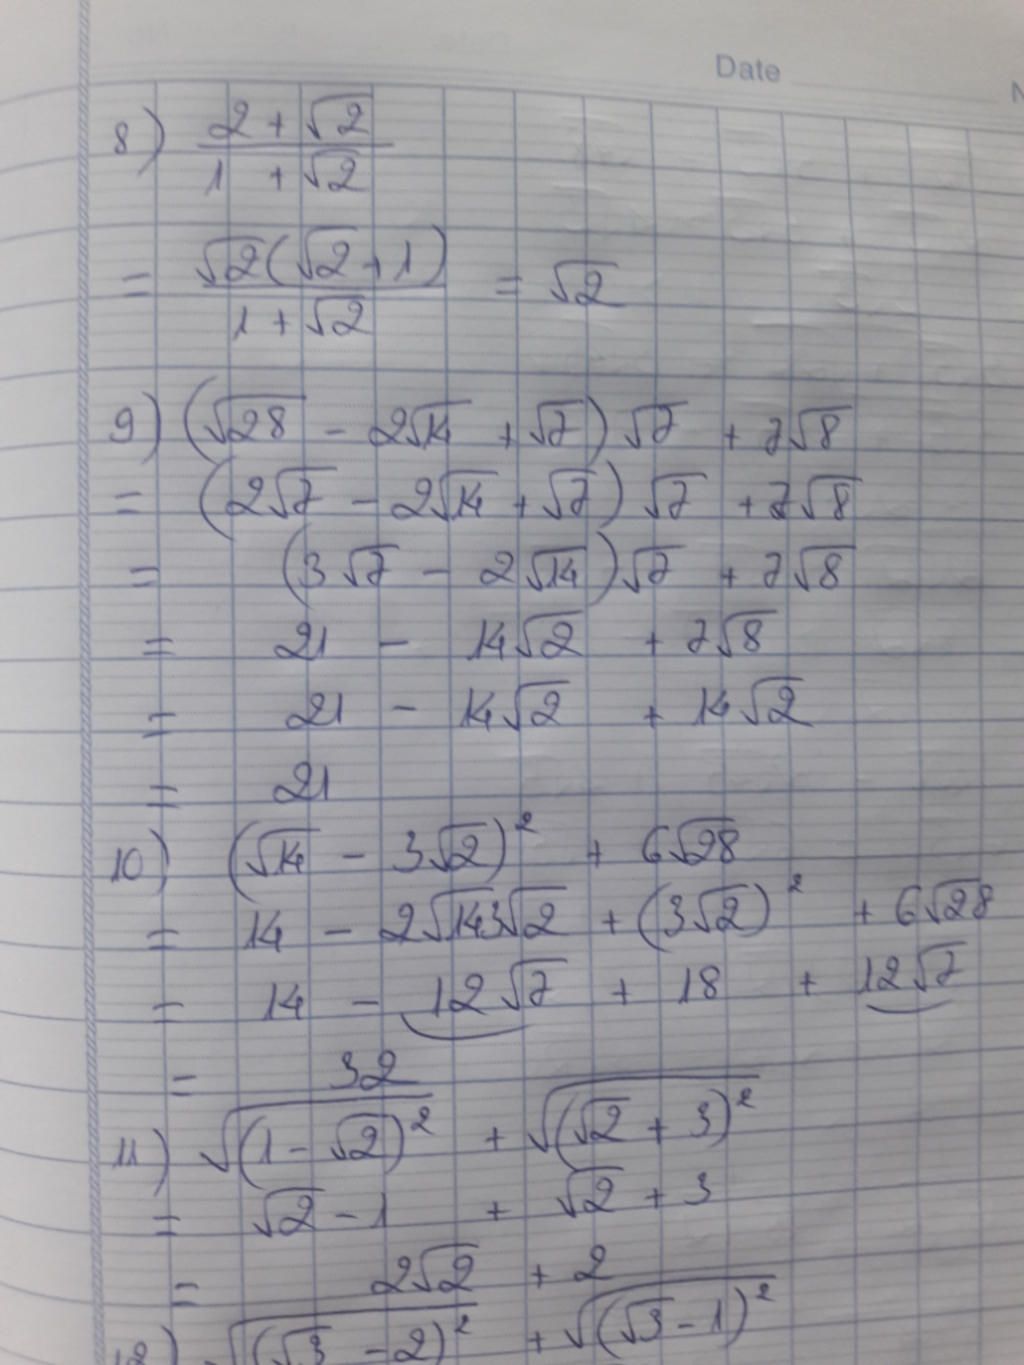 Date
8) (2 + √2)/(1 + √2)
= √2(√2 + 1)/(1 + √2) = √2
9) (√28 - 2√14 + √7)√7 + 7√8
= (2√7 - 2√14 + √7)√7 + 7√8
= (3√7 - 2√14)√7 + 7√8
= 21 - 14√2 + 7√8
= 21 - 14√2 + 14√2
= 21
10) (√14 - 3√2)² + 6√28
= 14 - 2√14 3√2 + (3√2)² + 6√28
= 14 - 12√7 + 18 + 12√7
= 32
11) √(1 - √2)² + √(√2 + 3)²
= √2 - 1 + √2 + 3
= 2√2 + 2
12) √(√3 - 2)² + √(√3 - 1)²